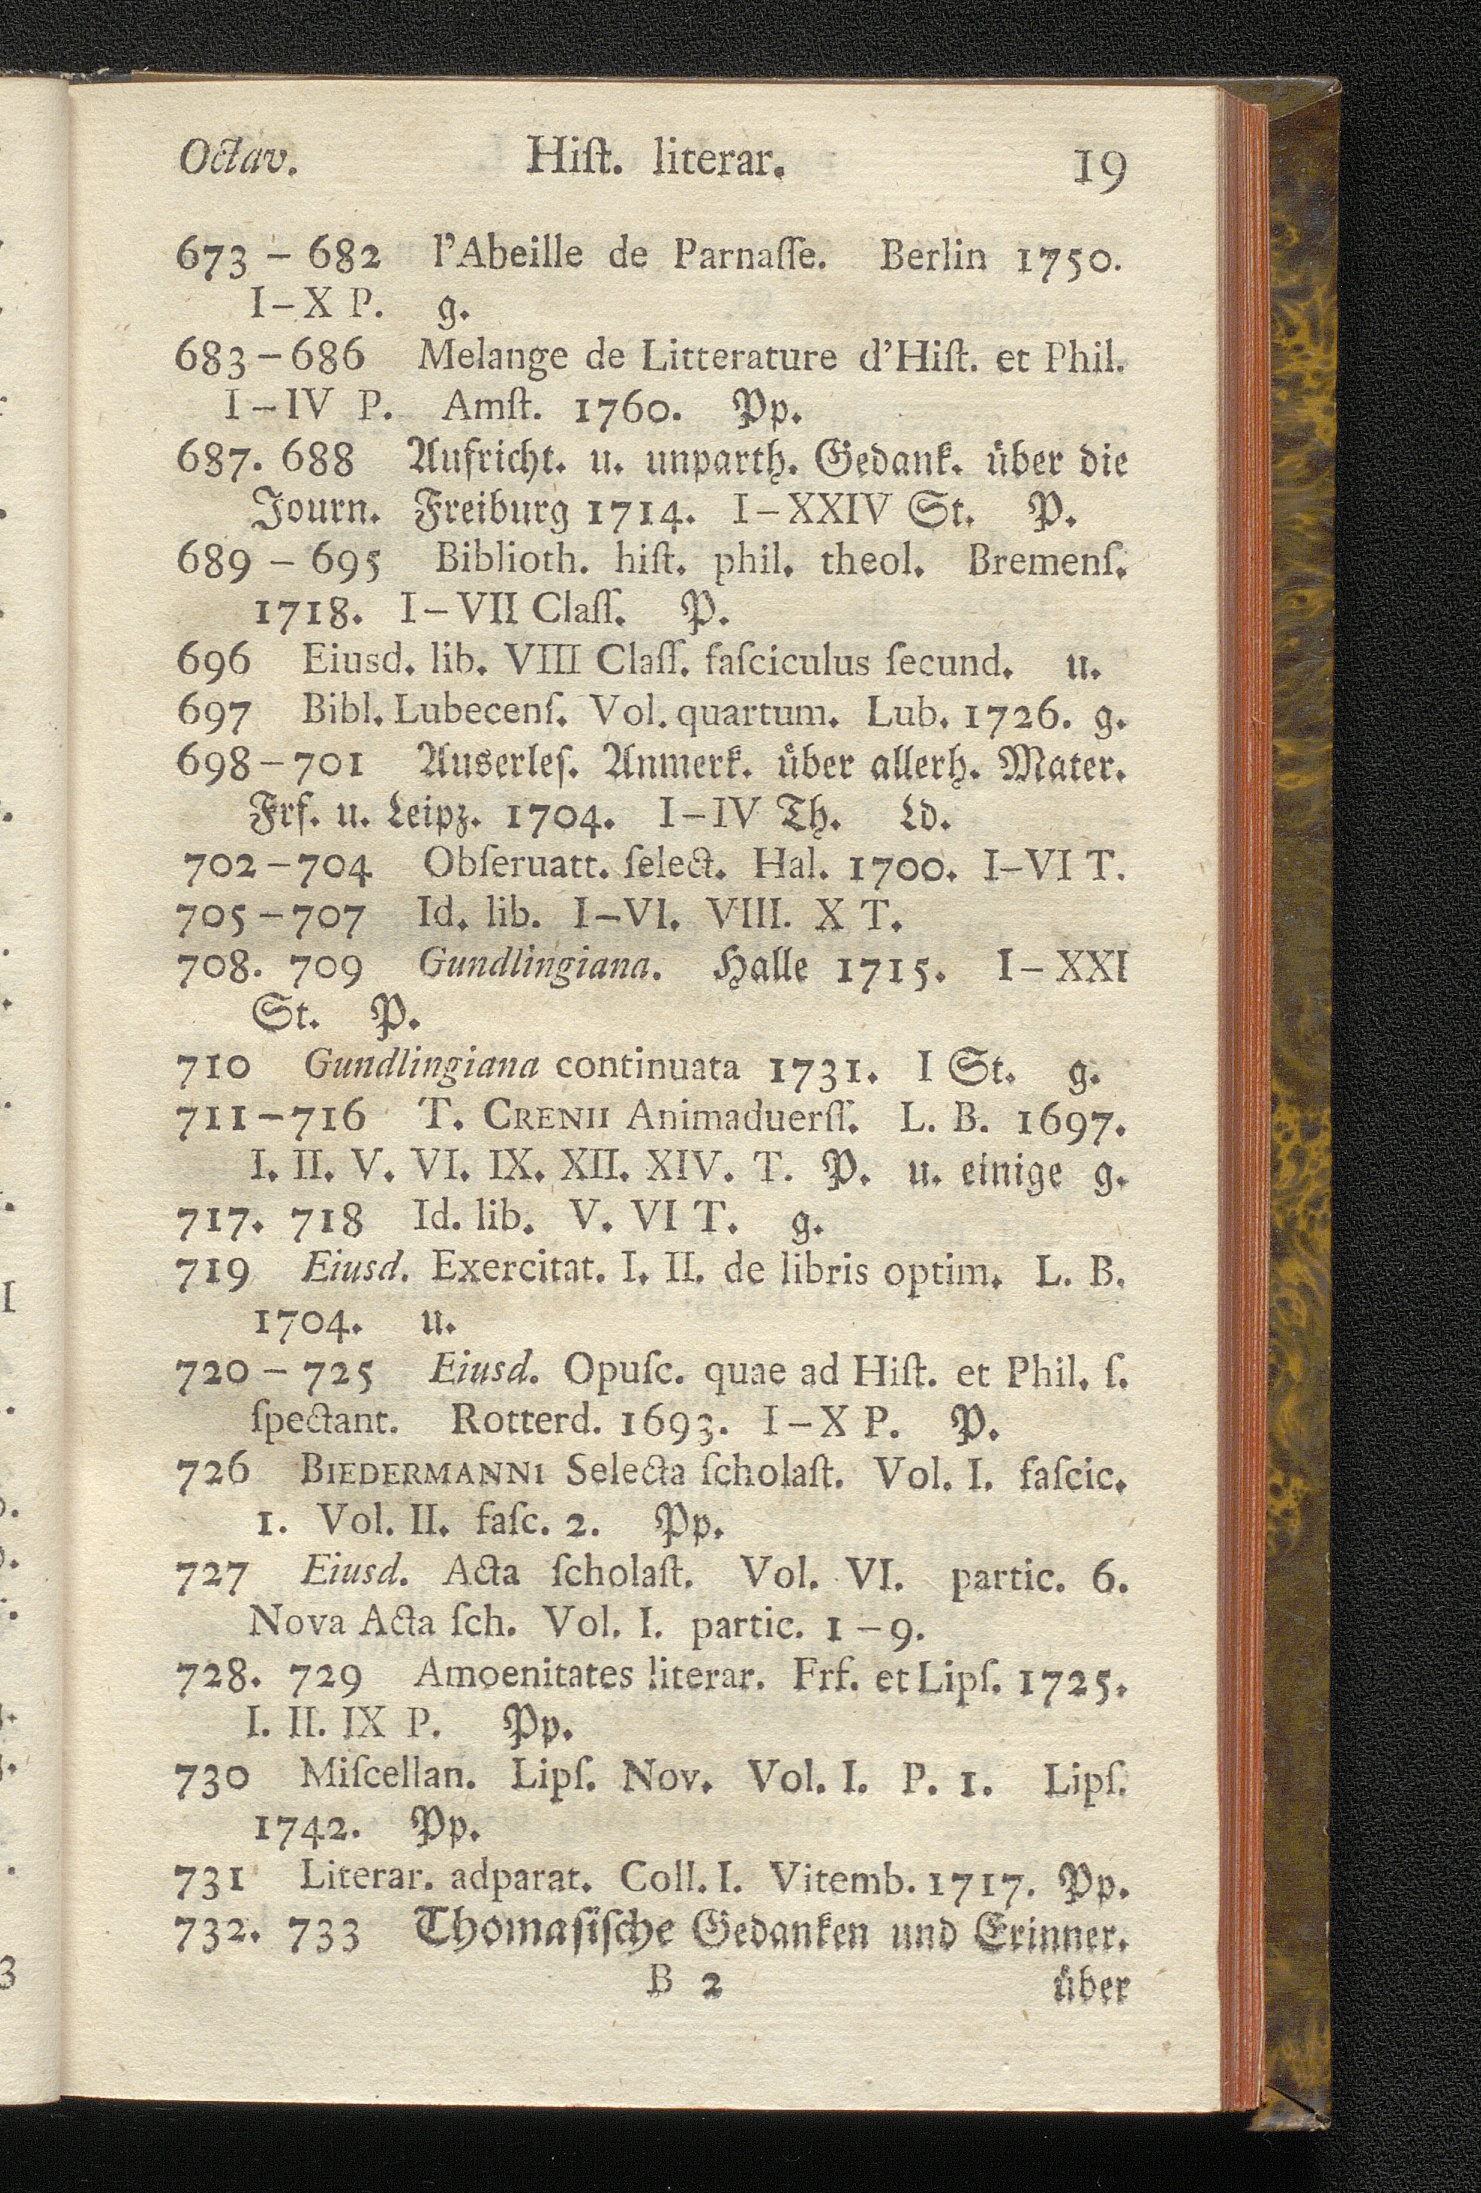 Octav. Hiſt. literar. 19
673 – 682 l'Abeille de Parnaſſe. Berlin 1750.
I – X P. g.
683 – 686 Melange de Litterature d'Hiſt. et Phil.
I – IV P. Amſt. 1760. Pp.
687. 688 Aufricht. u. unparth. Gedank. über die
Journ. Freiburg 1714. I – XXIV St. P.
689 – 695 Biblioth. hiſt. phil. theol. Bremenſ.
1718. I – VII Claſſ. P.
696 Eiusd. lib. VIII Claſſ. faſciculus ſecund. u.
697 Bibl. Lubecenſ. Vol. quartum. Lub. 1726. g.
698 – 701 Auserleſ. Anmerk. über allerh. Mater.
Frf. u. Leipz. 1704. I – IV Th. Ld.
702 – 704 Obſeruatt. ſelect. Hal. 1700. I – VI T.
705 – 707 Id. lib. I – VI. VIII. X T.
708. 709 Gundlingiana. Halle 1715. I – XXI
St. P.
710 Gundlingiana continuata 1731. I St. g.
711 – 716 T. CRENII Animaduerſſ. L. B. 1697.
I. II. V. VI. IX. XII. XIV. T. P. u. einige g.
717. 718 Id. lib. V. VI T. g.
719 Eiusd. Exercitat. I. II. de libris optim. L. B.
1704. u.
720 – 725 Eiusd. Opuſc. quae ad Hiſt. et Phil. ſ.
ſpectant. Rotterd. 1693. I – X P. P.
726 BIEDERMANNI Selecta ſcholaſt. Vol. I. faſcic.
1. Vol. II. faſc. 2. Pp.
727 Eiusd. Acta ſcholaſt. Vol. VI. partic. 6.
Nova Acta ſch. Vol. I. partic. 1 – 9.
728. 729 Amoenitates literar. Frf. et Lipſ. 1725.
I. II. IX P. Pp.
730 Miſcellan. Lipſ. Nov. Vol. I. P. 1. Lipſ.
1742. Pp.
731 Literar. adparat. Coll. I. Vitemb. 1717. Pp.
732. 733 Thomaſiſche Gedanken und Erinner.
B 2 über